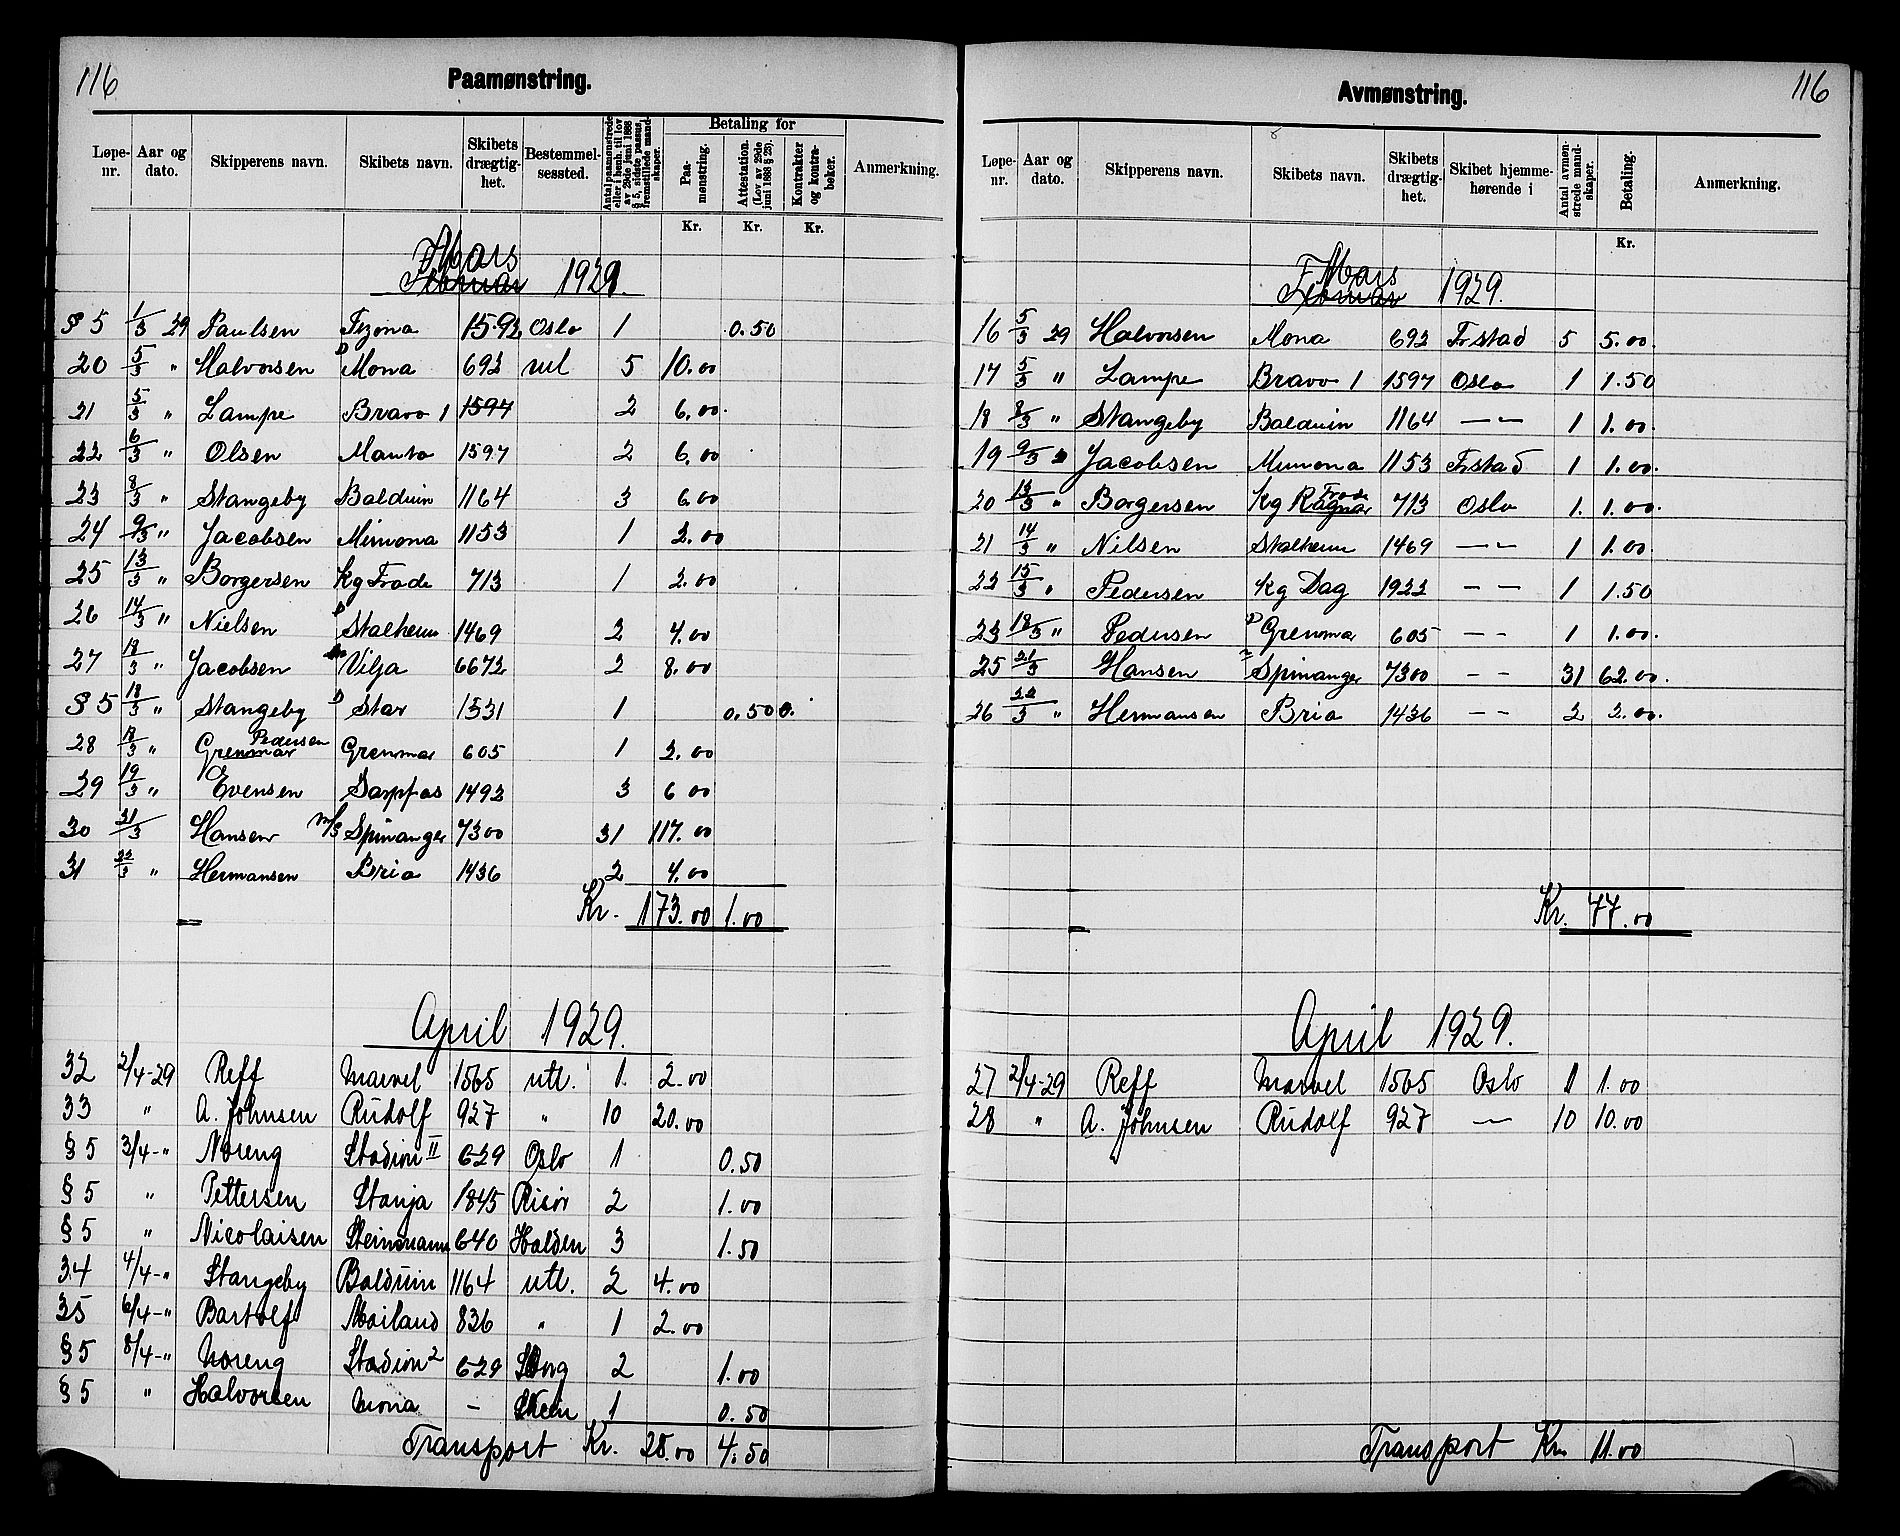 116
Paamønstring.
Løpe-nr. Aar og dato. Skipperens navn. Skibets navn. Skibets drægtig-het. Bestemmel-sessted. Antal paamønstrede eller i henh. til lov av 29de juni 1888 § 5, sidste passus, fremstillede mand-skaper. Betaling for Paa-mønstring. Attestation. (Lov av 29de juni 1888 § 25). Kontrakter og kontra-bøker. Anmerkning.
Kr. Kr. Kr.
Mars
Februar 1929.
§ 5 1/3 29 Paulsen Fezona 1592 Oslo 1 0.50
20 5/3 " Halvorsen D Mona 692 utl 5 10.00
21 5/3 " Lampe Bravo 1 1597 2 6.00.
22 6/3 " Olsen Manto 1597 2 6.00
23 8/3 " Stangeby Balduin 1164 3 6.00
24 9/3 " Jacobsen Mimona 1153 1 2.00
25 13/3 " Borgersen Kg Frode 713 1 2.00
26 14/3 " Nielsen D Stalheim 1469 2 4.00
27 18/3 " Jacobsen Vilja 6672 2 8.00
§ 5 18/3 " Stangeby D Star 1331 1 0.50
28 18/3 " Pedersen Grenmar Grenmar 605 1 2.00
29 19/3 " Evensen Sarpfos 1492 3 6 00
30 21/3 Hansen m/s Spinanger 7300 31 117.00
31 22/3 " Hermansen Bria 1436 2 4.00
Kr. 173.00 1.00
April 1929.
32 2/4-29 Reff Marvel 1565 utl. 1. 2.00
33 " A. Johnsen Rudolf 927 " 10 20.00
§ 5 3/4-" Noreng Stadion II 629 Oslo 1 0.50
§ 5 " Pettersen Stanja 1845 Risør 2 1.00
§ 5 " Nicolaisen Steinmann 640 Halden 3 1.50
34 4/4-" Stangeby Balduin 1164 utl. 2 4.00
35 6/4-" Bartolf Mailand 836 " 1 2.00
§ 5 8/4-" Noreng Stadion 2 629 Sborg 2 1.00
§ 5 " Halvorsen Mona - Skien 1 0.50
Transport Kr. 28.00 4.50
116
Avmønstring.
Løpe-nr. Aar og dato. Skipperens navn. Skibets navn. Skibets drægtig-het. Skibet hjemme-hørende i Antal avmøn-strede mand-skaper. Betaling. Anmerkning.
Kr.
Mars
Februar 1929.
16 5/3 29 Halvorsen Mona 692 Frstad 5 5.00.
17 5/3 " Lampe Bravo 1 1597 Oslo 1 1.50
18 8/3 " Stangeby Balduin 1164 — " — 1 1.00.
19 9/3 " Jacobsen Mimona 1153 Frstad 1 1.00.
20 13/3 " Borgersen Kg Ragnar Frode 713 Oslo 1. 1.00.
21 14/3 " Nilsen Stalheim 1469 — " — 1 1.00.
22 15/3 " Pedersen Kg Dag 1922 — — 1 1.50
23 18/3 " Pedersen D Grenmar 605 — — 1 1.00.
25 21/3 Hansen Spinanger 7300 - - 31 62.00.
26 22/3 " Hermansen Bria 1436 - - 2 2.00.
Kr. 77.00
April 1929.
27 2/4-29 Reff Marvel 1565 Oslo 1 1.00
28 " A. Johnsen Rudolf 927 — 10 10.00
Transport Kr. 11.00